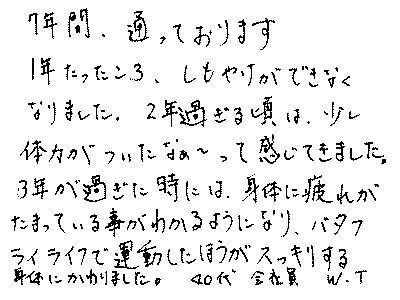 7年間、通っております
1年たったころ、しもやけができなく
なりました。2年過ぎる頃は、少し
体力がついたなぁ～って感じてきました。
3年が過ぎた時には、身体に疲れが
たまっている事がわかるようになり、バタフ
ライライフで運動したほうがスッキリする
身体にかわりました。 40代 会社員 W.T